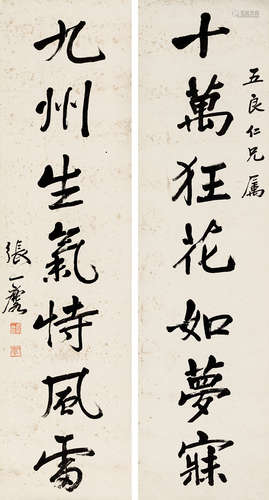 十萬狂花如夢寐
五良仁兄屬
九州生氣恃風雷
張一麐